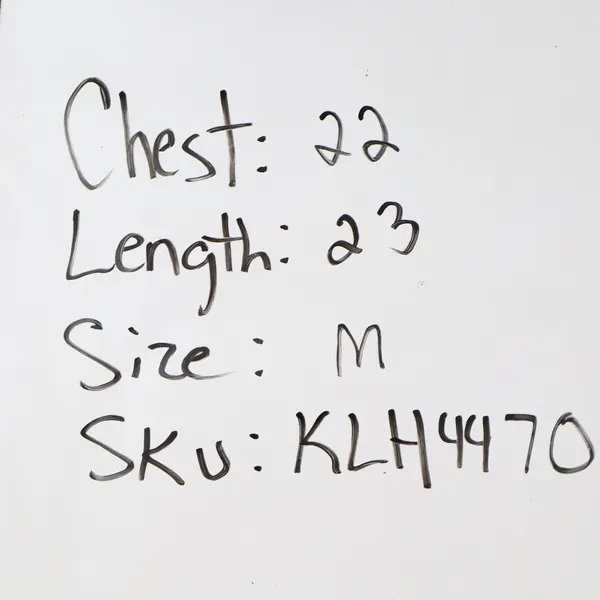 Chest: 22
Length: 23
Size: M
SKU: KLH4470